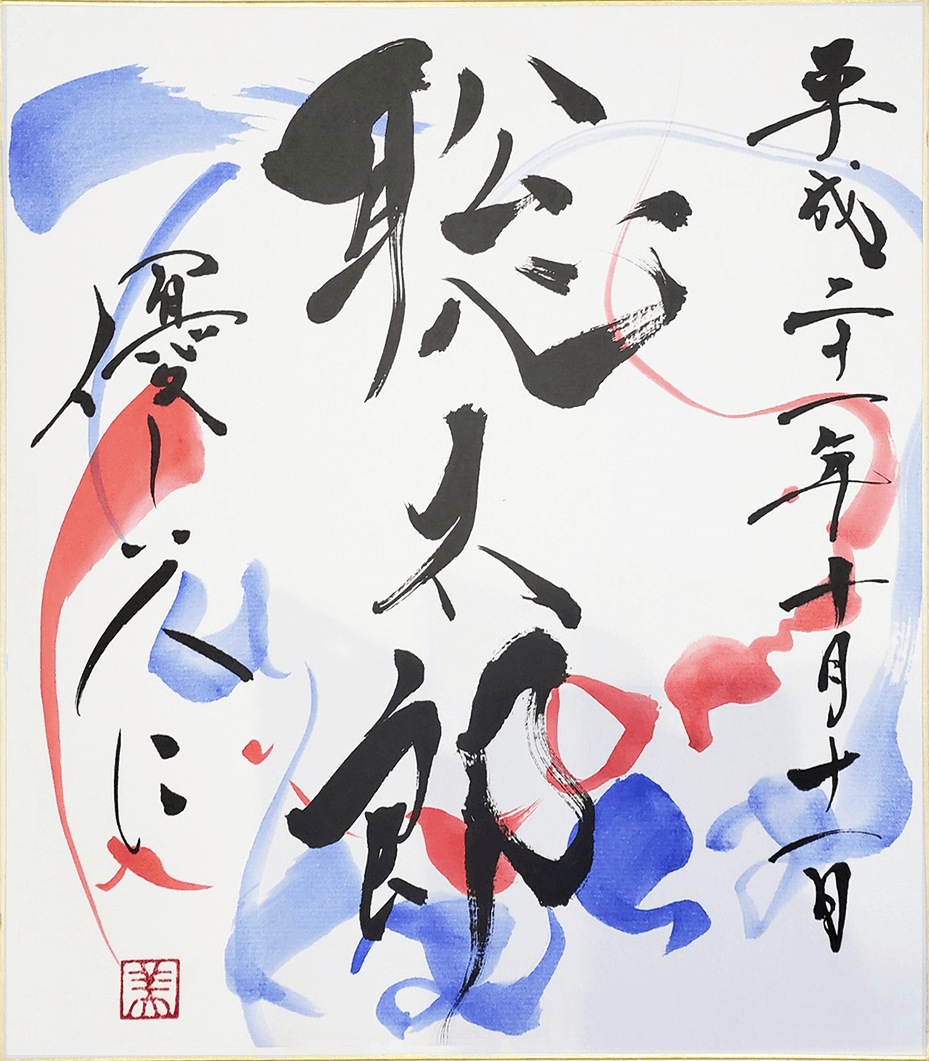 平成二十一年十月十一日
聡太郎
優しい人に
美